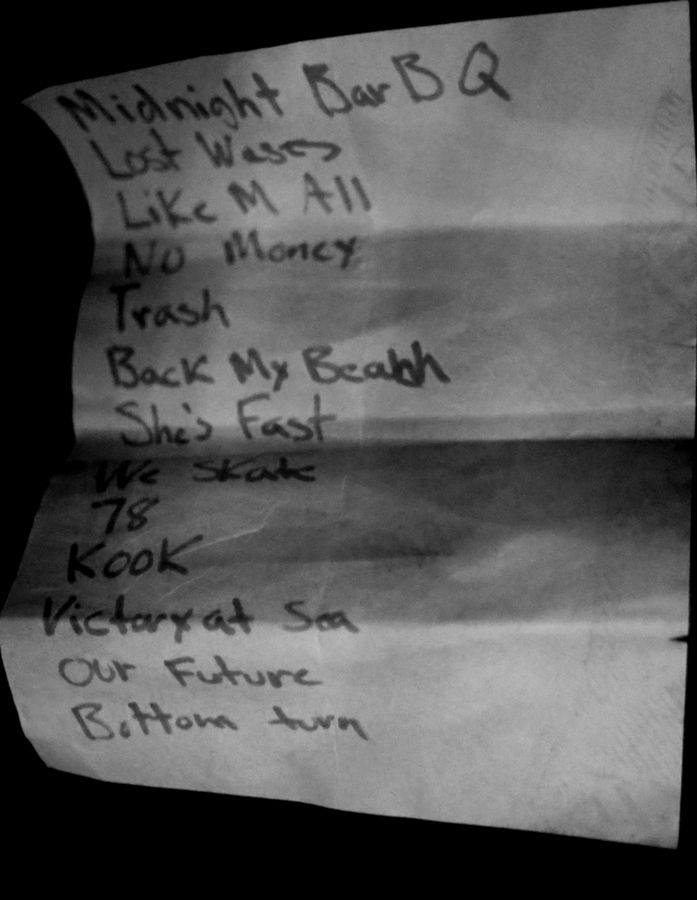 Midnight Bar B Q
Lost Waves
Like M All
No Money
Trash
Back My Beach
She's Fast
We Skate
78
Kook
Victory at Sea
Our Future
Bottom turn